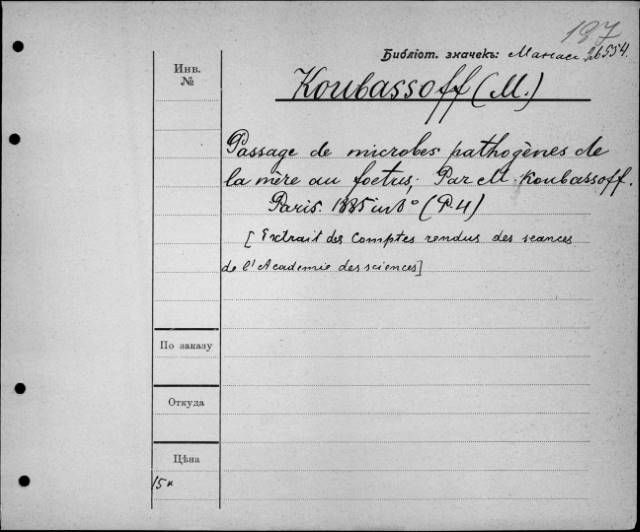 197
Библіот. значекъ: Манасс 26554.
Инв.
№
Koubassoff (M.)
Passage de microbes pathogènes de
la mère au foetus; Par M. Koubassoff.
Paris. 1885 in 8° (P. 4)
[Extrait des Comptes rendus des seances
de l'Academie des sciences]
По заказу
Откуда
Цѣна
15к